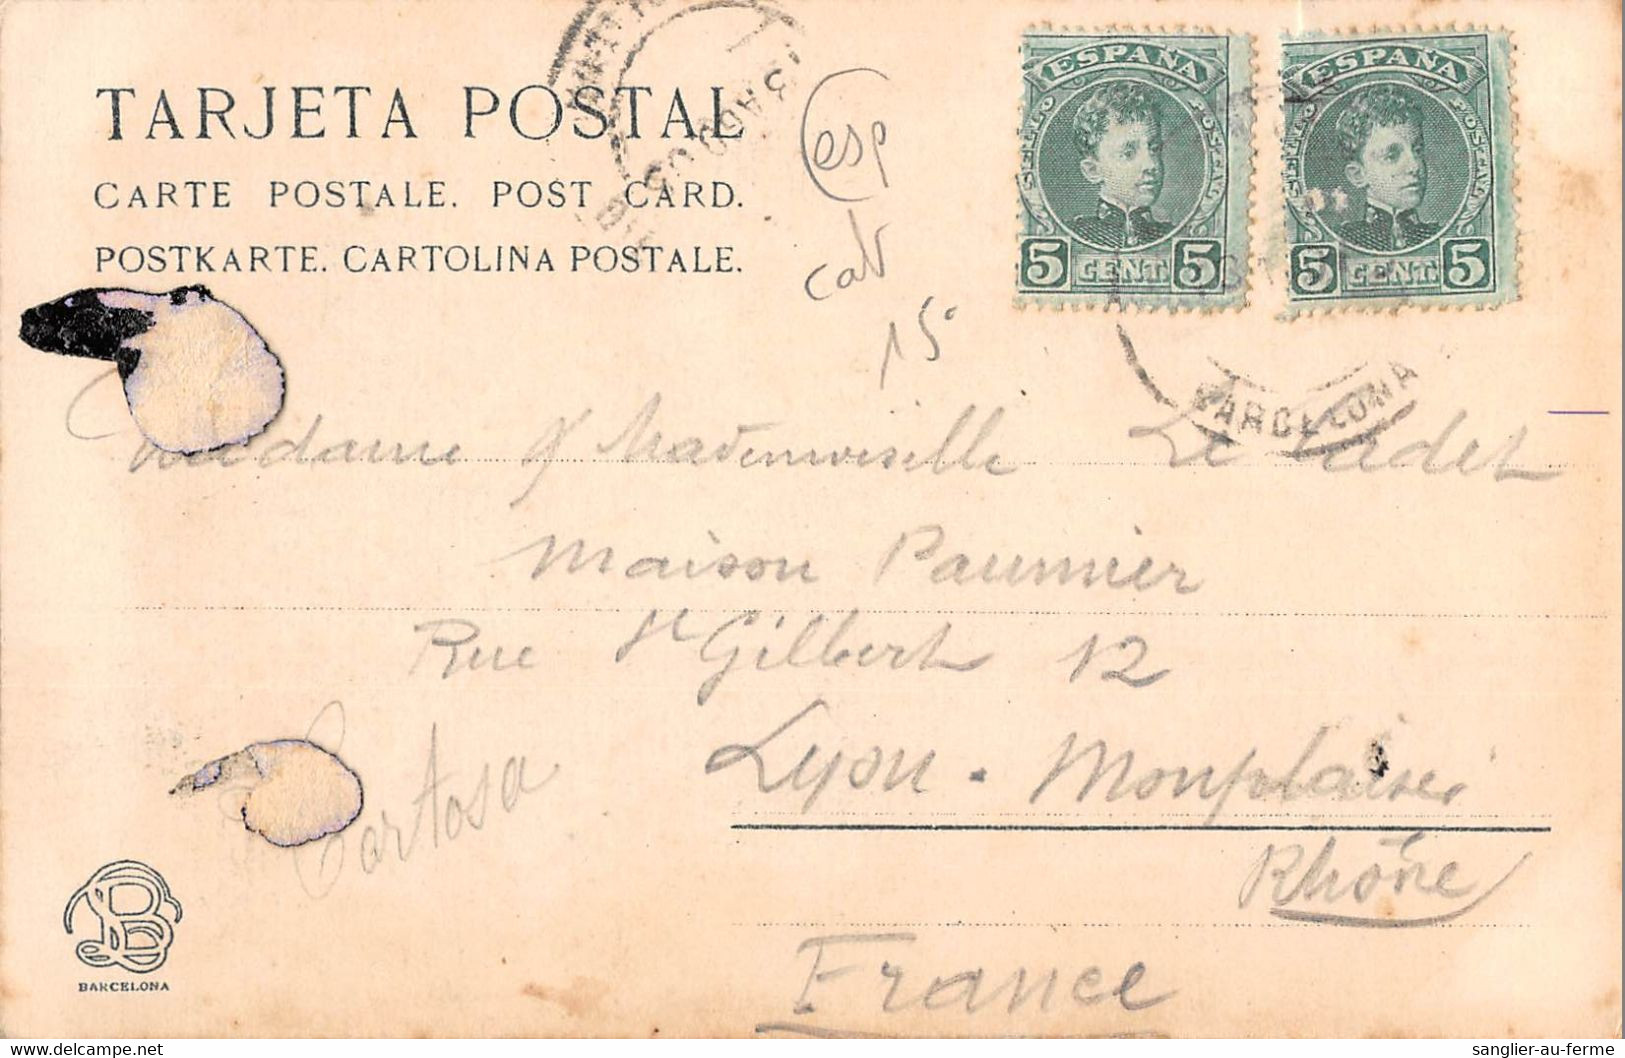 TARJETA POSTAL
CARTE POSTALE. POST CARD.
POSTKARTE. CARTOLINA POSTALE.
esp
cat
15
ESPAÑA
SELLO POSTAL
5 CENT. 5
ESPAÑA
SELLO POSTAL
5 CENT. 5
BARCELONA
Madame & Mademoiselle Le Cadet
Maison Paumier
Rue St Gilbert 12
Lyon - Monplaisir
Rhône
France
Cartosa
BARCELONA
sanglier-au-ferme